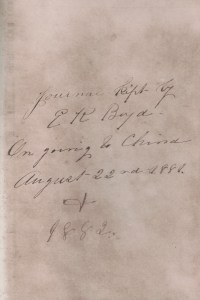 Journal kept by
E R Boyd.
On going to China
August 22nd 1881.
&
1882.